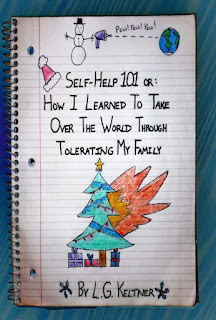 Pew! Pew! Pew!
SELF-HELP 101 OR:
HOW I LEARNED TO TAKE
OVER THE WORLD THROUGH
TOLERATING MY FAMILY
BY L.G. KELTNER